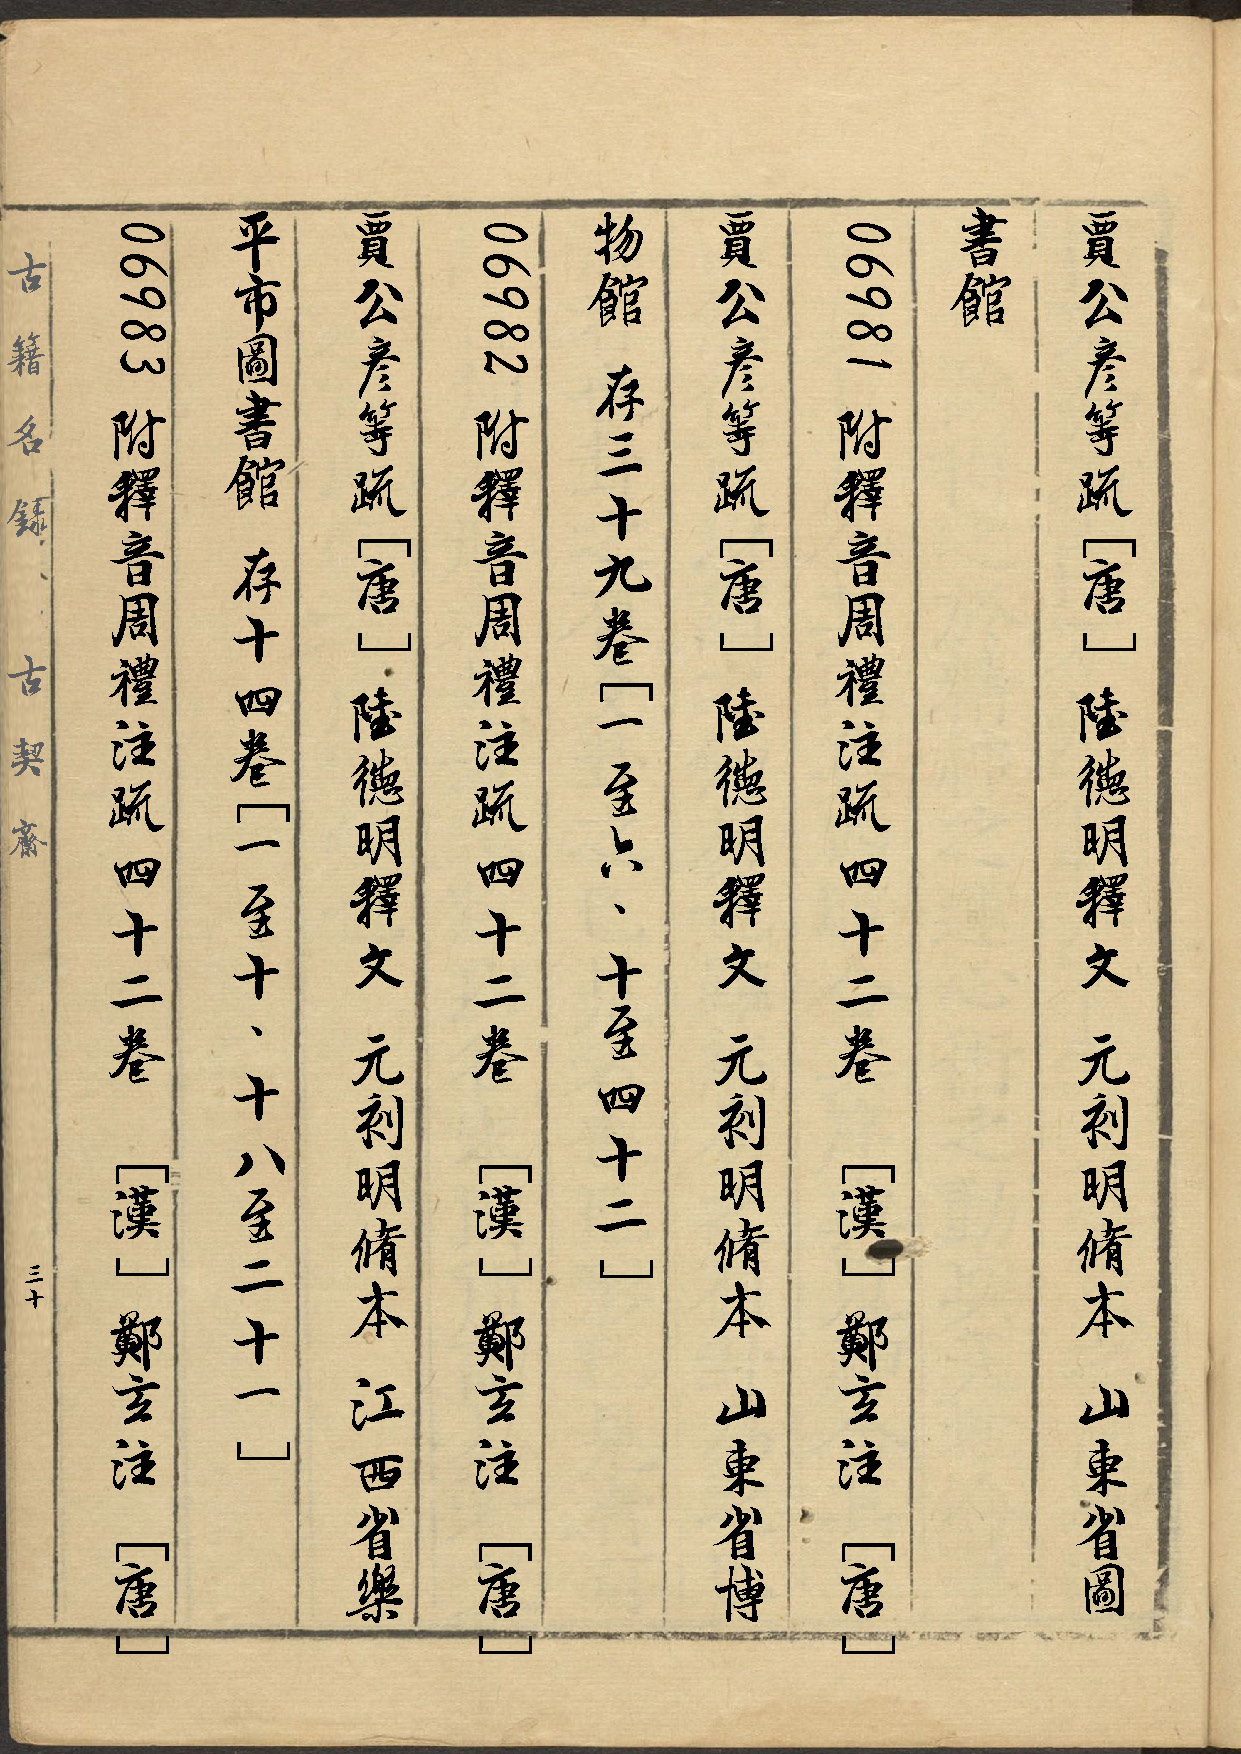 賈公彦等疏［唐］陸德明釋文　元刻明脩本　山東省圖
書館
06981 附釋音周禮注疏四十二卷　［漢］鄭玄注　［唐］
賈公彦等疏［唐］陸德明釋文　元刻明脩本　山東省博
物館　存三十九卷［一至六、十至四十二］
06982 附釋音周禮注疏四十二卷　［漢］鄭玄注　［唐］
賈公彦等疏［唐］陸德明釋文　元刻明脩本　江西省樂
平市圖書館　存十四卷［一至十、十八至二十一］
06983 附釋音周禮注疏四十二卷　［漢］鄭玄注　［唐］
古籍名録、、古契齋
三十